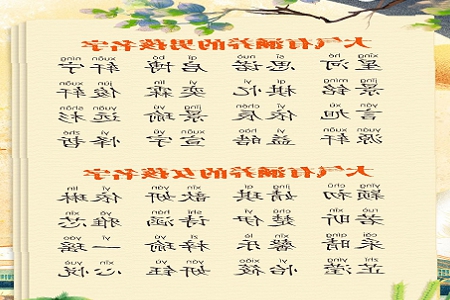 大气有涵养的男孩名字
xīng hé sī nuò qǐ bó xuān yǔ
星河 思诺 启博 轩宇
jǐng míng qí yì yì lín jùn xuān
景铭 棋忆 奕霖 俊轩
yán xù yī chén jǐng yú yuǎn shān
言旭 依辰 景瑜 远杉
yuán xuān yì hào xuān yǔ yì zhé
源轩 益皓 宣宇 怿哲
大气有涵养的女孩名字
yǐng chū jìng qí xīn yán yī lín
颖初 婧琪 歆妍 依琳
ruò xīn chǔ yī shī hán yǎ xīn
若昕 楚伊 诗涵 雅芯
cǎi qíng xīn lè zǐ yú yī yáo
采晴 馨乐 梓瑜 一瑶
zhǐ yíng yí xiǎo yán yù xīn yuè
芷滢 怡筱 妍钰 心悦